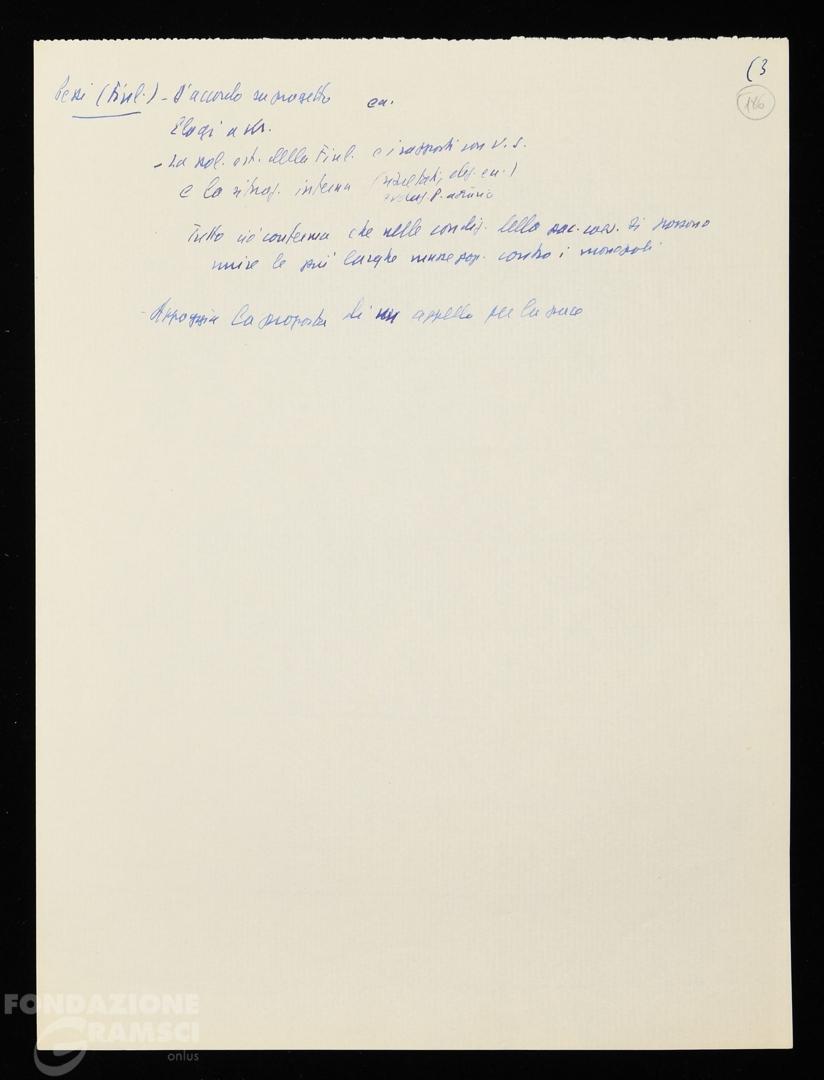 (3
186
Pessi (Finl.) - D'accordo su progetto ca.
Elogi a
- La pol. est. della Finl. e i rapporti con U.S.
e la situaz. interna (risultati, elez. ca.)
Tutto ciò conferma che nelle condiz. della si possono
unire le più larghe masse pop. contro i monopoli
- Appoggia la proposta di un appello per la pace
FONDAZIONE
GRAMSCI
onlus